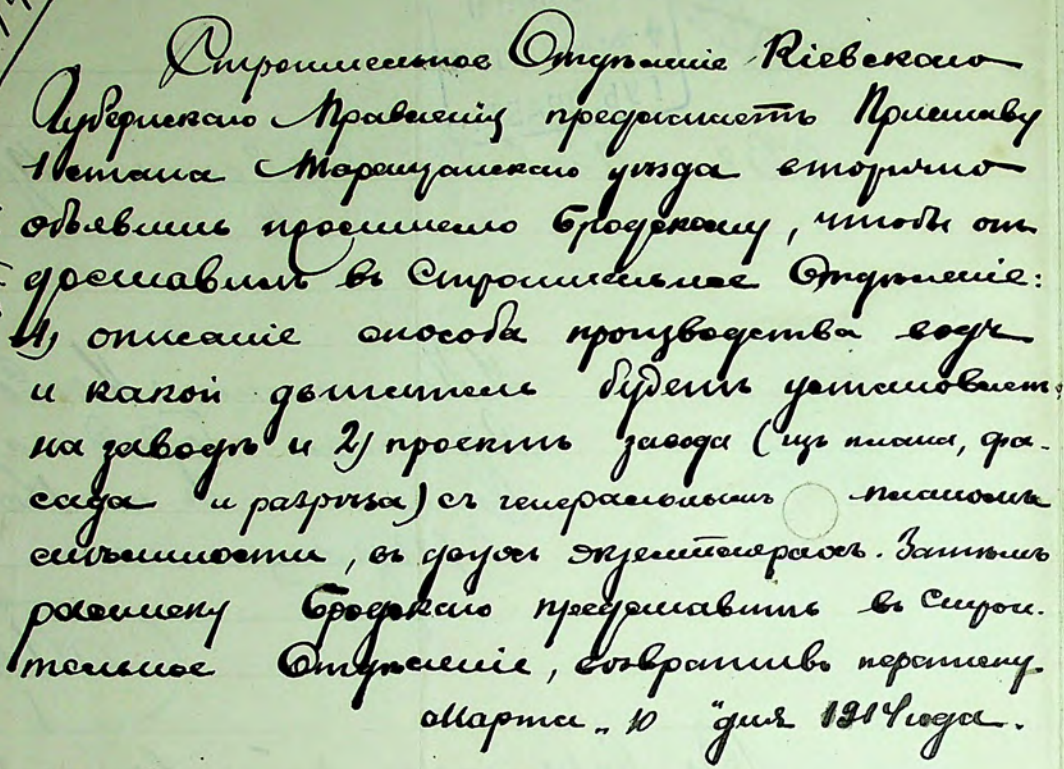 Строительное Отдѣленіе Кіевскаго
Губернскаго Правленія предлагаетъ Приставу
1 стана Таращанскаго уѣзда вторично
объявить просителю Бродскому, чтобы онъ
доставилъ въ Строительное Отдѣленіе:
1) описаніе способа производства водъ
и какой двигатель будетъ установленъ
на заводѣ и 2) проектъ завода (изъ плана, фа-
сада и разрѣза) съ генеральнымъ планомъ
мѣстности, въ двухъ экземплярахъ. Затѣмъ
расписку Бродскаго представить въ Строи-
тельное Отдѣленіе, возвративъ переписку.
Марта „10" дня 1914 года.